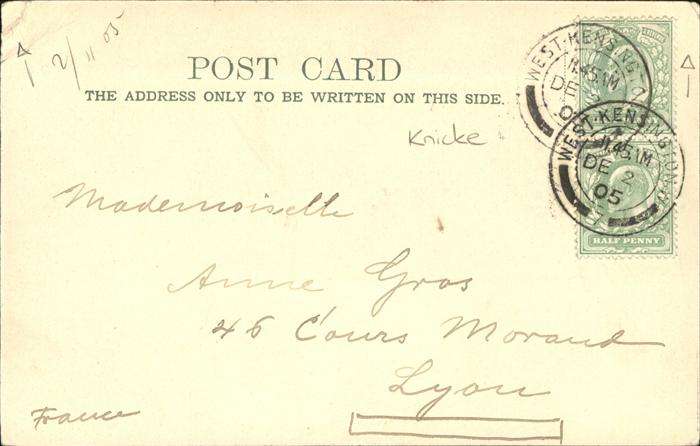 2/11 05
POST CARD
THE ADDRESS ONLY TO BE WRITTEN ON THIS SIDE.
WEST·KENSINGTO
11.45 AM
DE
0
WEST·KENSINGTON
11.45 AM
DE 2
05
HALF PENNY
Knicke
Mademoiselle
Anne Gros
46 Cours Morand
Lyon
France